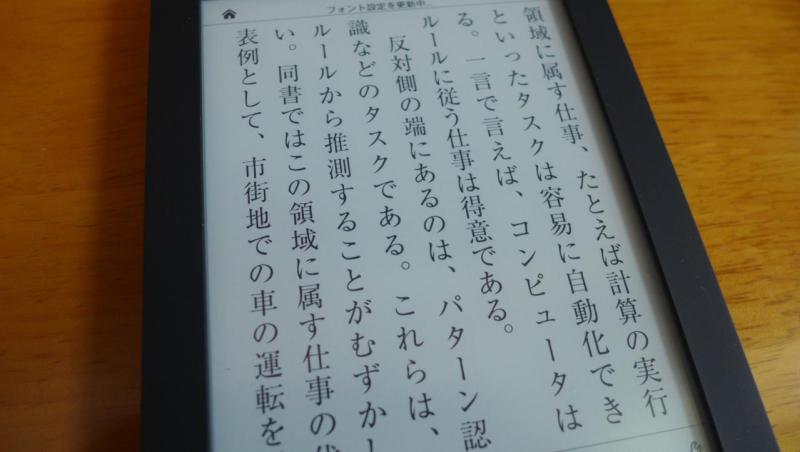 フォント設定を更新中…
領域に属す仕事、たとえば計算の実行
といったタスクは容易に自動化でき
る。一言で言えば、コンピュータは
ルールに従う仕事は得意である。
反対側の端にあるのは、パターン認
識などのタスクである。これらは、
ルールから推測することがむずかし
い。同書ではこの領域に属す仕事の代
表例として、市街地での車の運転を